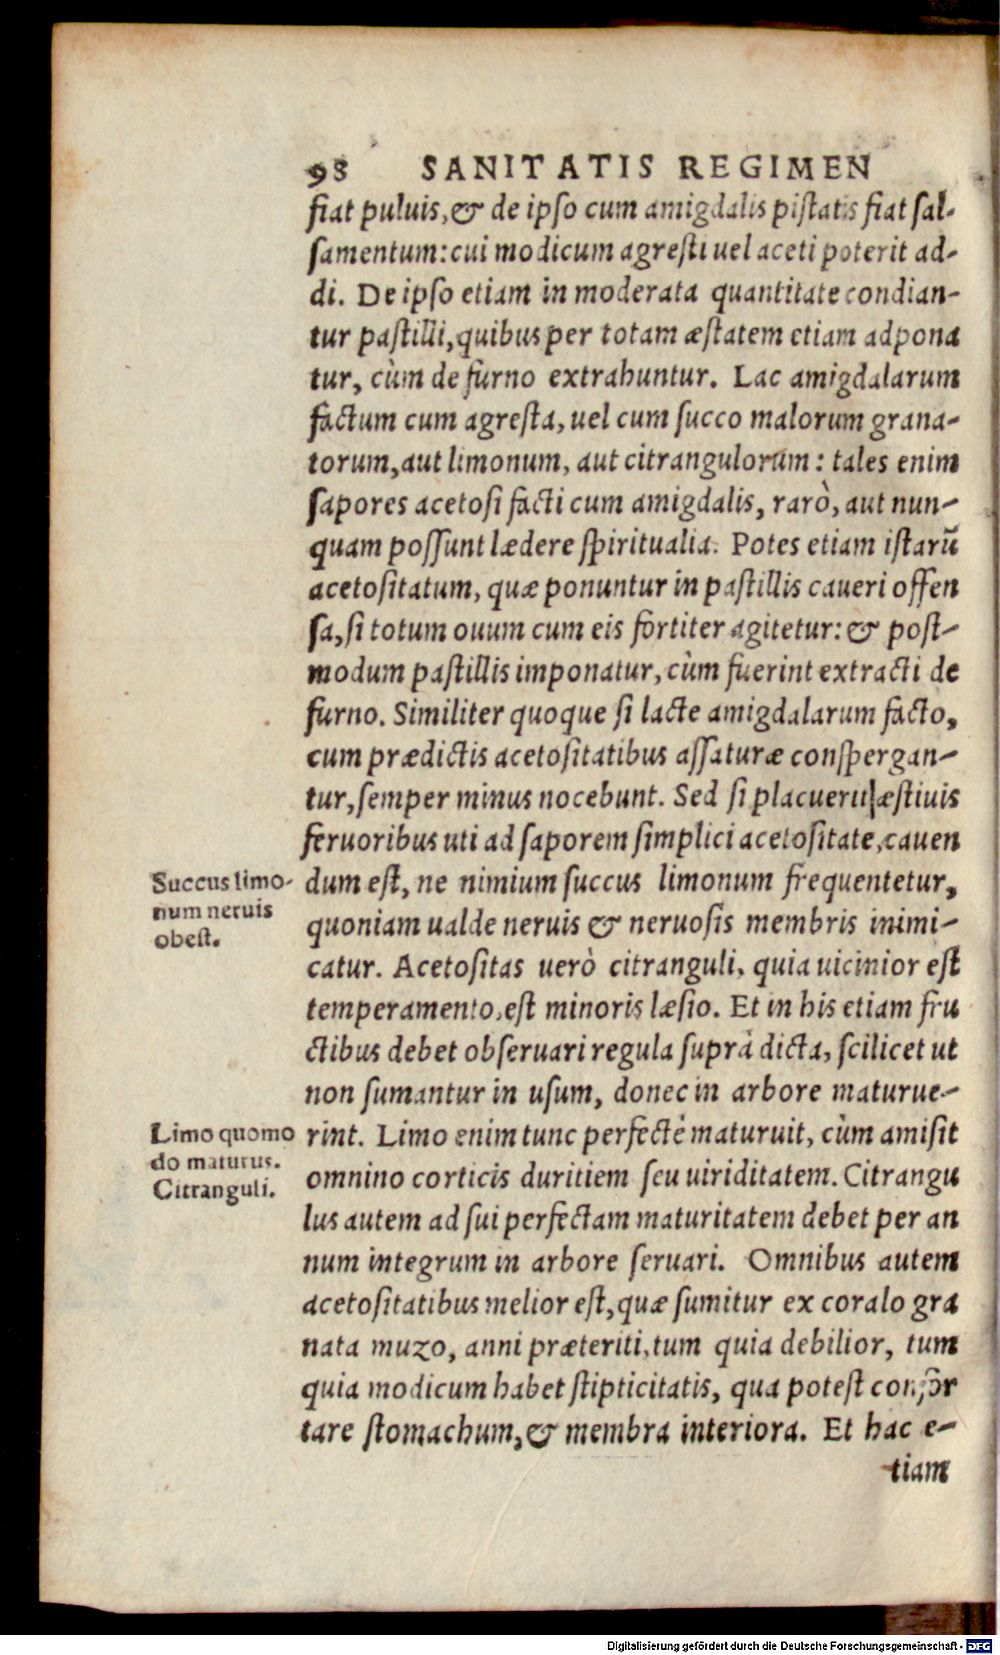 98 SANITATIS REGIMEN
fiat puluis, & de ipso cum amigdalis pistatis fiat sal-
samentum: cui modicum agresti uel aceti poterit ad-
di. De ipso etiam in moderata quantitate condian-
tur pastilli, quibus per totam æstatem etiam adpona
tur, cùm de furno extrahuntur. Lac amigdalarum
factum cum agresta, uel cum succo malorum grana-
torum, aut limonum, aut citrangulorum: tales enim
sapores acetosi facti cum amigdalis, rarò, aut nun-
quam possunt lædere spiritualia. Potes etiam istarũ
acetositatum, quæ ponuntur in pastillis caueri offen
sa, si totum ouum cum eis fortiter agitetur: & post-
modum pastillis imponatur, cùm fuerint extracti de
furno. Similiter quoque si lacte amigdalarum facto,
cum prædictis acetositatibus assaturæ conspergan-
tur, semper minus nocebunt. Sed si placuerit æstiuis
feruoribus uti ad saporem simplici acetositate, cauen
Succus limo-
num neruis
obest.
dum est, ne nimium succus limonum frequentetur,
quoniam ualde neruis & neruosis membris inimi-
catur. Acetositas uerò citranguli, quia uicinior est
temperamento, est minoris læsio. Et in his etiam fru
ctibus debet obseruari regula suprà dicta, scilicet ut
non sumantur in usum, donec in arbore maturue-
Limo quomo
do maturus.
Citranguli.
rint. Limo enim tunc perfectè maturuit, cùm amisit
omnino corticis duritiem seu uiriditatem. Citrangu
lus autem ad sui perfectam maturitatem debet per an
num integrum in arbore seruari. Omnibus autem
acetositatibus melior est, quæ sumitur ex coralo gra
nata muzo, anni præteriti, tum quia debilior, tum
quia modicum habet stipticitatis, qua potest confor
tare stomachum, & membra interiora. Et hac e-
tiam
Digitalisierung gefördert durch die Deutsche Forschungsgemeinschaft - DFG